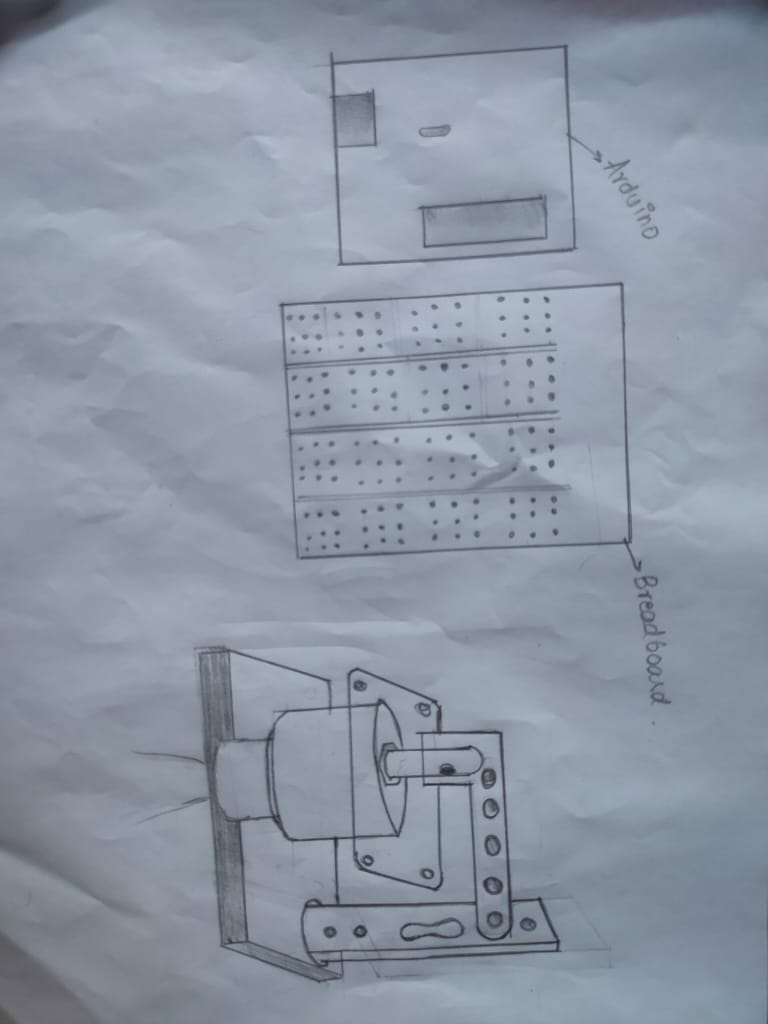 Arduino
Breadboard.